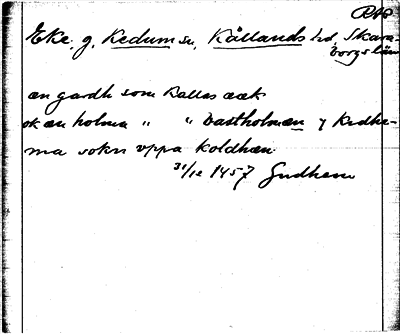 RAP
Eke. g. Kedum sn, Kållands hd, Skara-
borgs län
æn gardh som kallas æek
ok æn holma " " Vastholmæn j Kedhe-
ma sokn vppa koldhæn.
31/12 1457 Gudhem